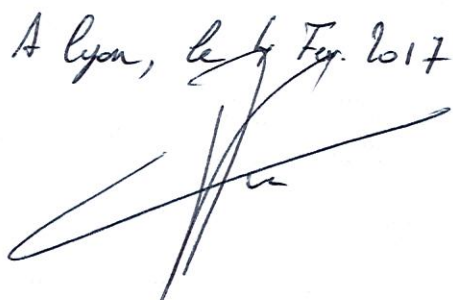 A Lyon, le Fev. 2017